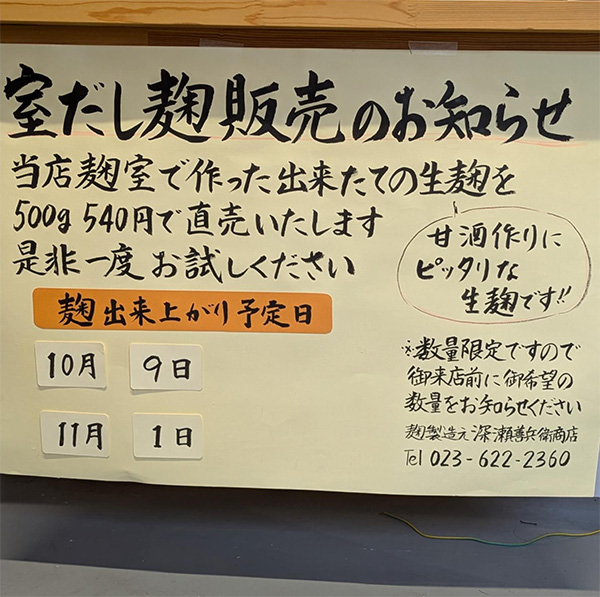 室だし麹販売のお知らせ
当店麹室で作った出来たての生麹を
500g 540円で直売いたします
是非一度 お試しください
甘酒作りに
ピッタリな
生麹です!!
麹出来上がり予定日
10月 9日
11月 1日
※数量限定ですので
御来店前に御希望の
数量をお知らせください
麹製造元 深瀬善兵衛商店
Tel 023-622-2360